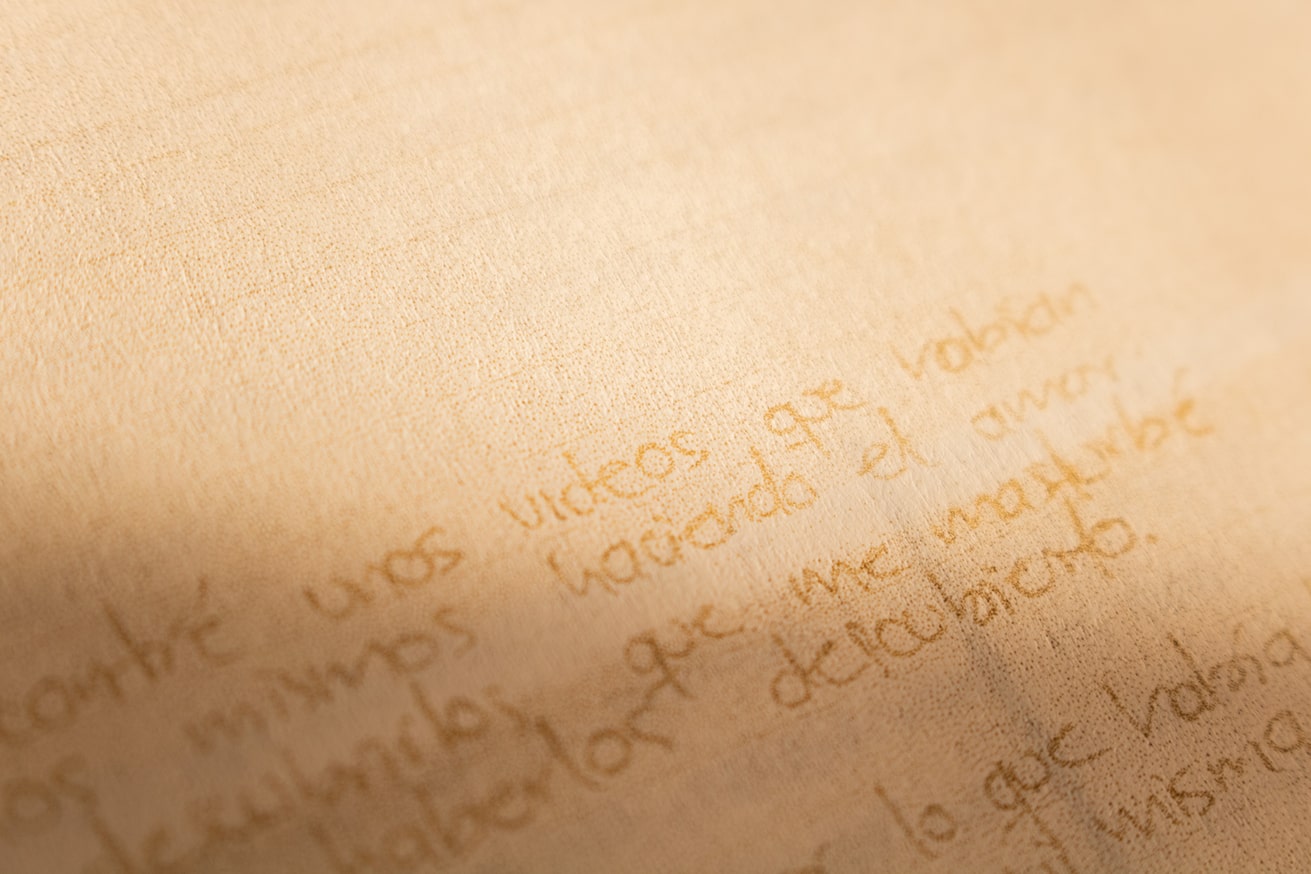 unos videos, que habían
os mismos haciendo el amor
descubrirlos que me masturbé
haberlos descubierto.
lo que había
misma